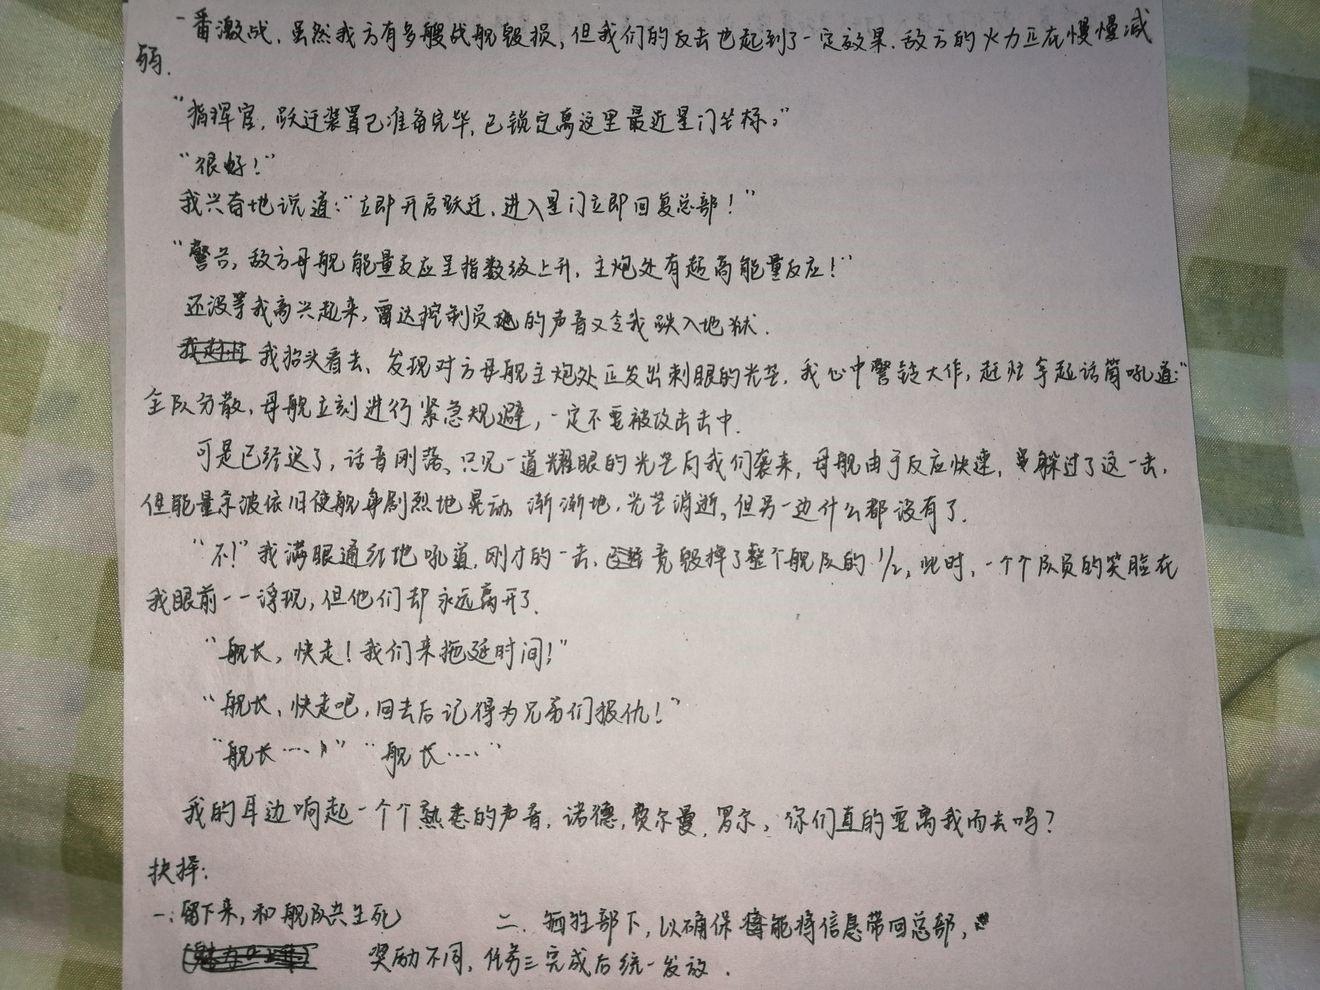 一番激战，虽然我方有多艘战舰毁损，但我们的反击也起到了一定效果，敌方的火力正在慢慢减
弱．
“指挥官，跃迁装置已准备完毕，已锁定离这里最近星门坐标。”
“很好！”
我兴奋地说道：“立即开启跃迁，进入星门立即回复总部！”
“警告，敌方母舰能量反应呈指数级上升，主炮处有超高能量反应！”
还没等我高兴起来，雷达控制员的声音又令我跌入地狱．
我抬头看去、发现对方母舰主炮处正发出刺眼的光芒，我心中警铃大作，赶忙拿起话筒吼道：“
全队分散，母舰立刻进行紧急规避，一定不要被攻击击中．
可是已经迟了，话音刚落、只见一道耀眼的光芒向我们袭来，母舰由于反应快速，躲过了这一击，
但能量余波依旧使舰身剧烈地晃动，渐渐地，光芒消逝，但另一边什么都没有了．
“不！”我满眼通红地吼道，刚才的一击，竟毁掉了整个舰队的1/2，此时，一个个队员的笑脸在
我眼前一一浮现，但他们却永远离开了．
“舰长，快走！我们来拖延时间！”
“舰长，快走吧，回去后记得为兄弟们报仇！”
“舰长……！”“舰长……”
我的耳边响起一个个熟悉的声音，诺德，费尔曼，罗尔，你们真的要离我而去吗？
抉择：
一：留下来，和舰队共生死 二．牺牲部下，以确保能将信息带回总部，
奖励不同，任务三完成后统一发放．